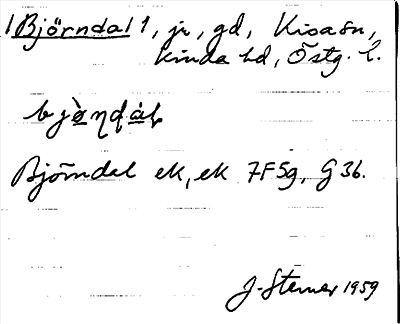 1 Björndal 1, jr, gd, Kisa sn,
Kinda hd, Östg. l.
Björndal ek, ek 7F5g, G 36.
J. Sterner 1959